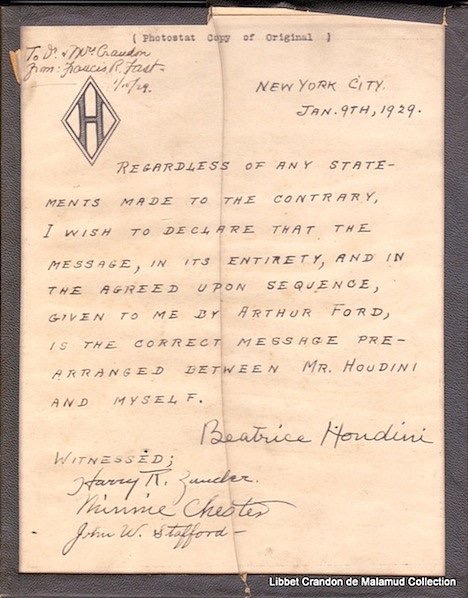 ( Photostat Copy of Original )
To Dr. & Mrs Crandon
From: Francis R. Fast-
1/10/29.
H
NEW YORK CITY.
JAN. 9TH, 1929.
REGARDLESS OF ANY STATE-
MENTS MADE TO THE CONTRARY,
I WISH TO DECLARE THAT THE
MESSAGE, IN ITS ENTIRETY, AND IN
THE AGREED UPON SEQUENCE,
GIVEN TO ME BY ARTHUR FORD,
IS THE CORRECT MESSAGE PRE-
ARRANGED BETWEEN MR. HOUDINI
AND MYSELF.
Beatrice Houdini
WITNESSED;
Harry R. Zander.
Minnie Chester
John W. Stafford-
Libbet Crandon de Malamud Collection